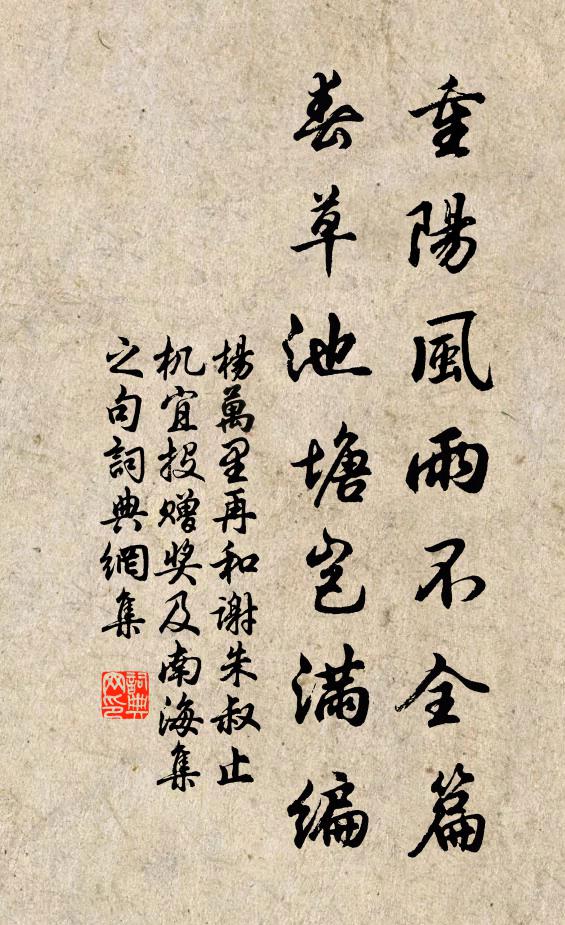 重陽風雨不全篇
春草池塘岂滿编
楊萬里再和谢朱叔止
机宜投赠奖及南海集
之句詞典網集
詞典网印